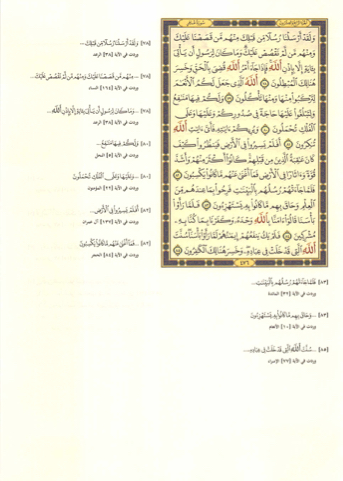 وَلَقَدْ أَرْسَلْنَا رُسُلًا مِّن قَبْلِكَ مِنْهُم مَّن قَصَصْنَا عَلَيْكَ
وَمِنْهُم مَّن لَّمْ نَقْصُصْ عَلَيْكَ وَمَا كَانَ لِرَسُولٍ أَن يَأْتِيَ
بِـَٔايَةٍ إِلَّا بِإِذْنِ ٱللَّهِ فَإِذَا جَآءَ أَمْرُ ٱللَّهِ قُضِيَ بِٱلْحَقِّ وَخَسِرَ
هُنَالِكَ ٱلْمُبْطِلُونَ ٧٨ ٱللَّهُ ٱلَّذِي جَعَلَ لَكُمُ ٱلْأَنْعَٰمَ
لِتَرْكَبُوا۟ مِنْهَا وَمِنْهَا تَأْكُلُونَ ٧٩ وَلَكُمْ فِيهَا مَنَٰفِعُ
وَلِتَبْلُغُوا۟ عَلَيْهَا حَاجَةً فِي صُدُورِكُمْ وَعَلَيْهَا وَعَلَى
ٱلْفُلْكِ تُحْمَلُونَ ٨٠ وَيُرِيكُمْ ءَايَٰتِهِۦ فَأَيَّ ءَايَٰتِ ٱللَّهِ
تُنكِرُونَ ٨١ أَفَلَمْ يَسِيرُوا۟ فِي ٱلْأَرْضِ فَيَنظُرُوا۟ كَيْفَ
كَانَ عَٰقِبَةُ ٱلَّذِينَ مِن قَبْلِهِمْ كَانُوٓا۟ أَكْثَرَ مِنْهُمْ وَأَشَدَّ
قُوَّةً وَءَاثَارًا فِي ٱلْأَرْضِ فَمَآ أَغْنَىٰ عَنْهُم مَّا كَانُوا۟ يَكْسِبُونَ ٨٢
فَلَمَّا جَآءَتْهُمْ رُسُلُهُم بِٱلْبَيِّنَٰتِ فَرِحُوا۟ بِمَا عِندَهُم مِّنَ
ٱلْعِلْمِ وَحَاقَ بِهِم مَّا كَانُوا۟ بِهِۦ يَسْتَهْزِءُونَ ٨٣ فَلَمَّا رَأَوْا۟
بَأْسَنَا قَالُوٓا۟ ءَامَنَّا بِٱللَّهِ وَحْدَهُۥ وَكَفَرْنَا بِمَا كُنَّا بِهِۦ
مُشْرِكِينَ ٨٤ فَلَمْ يَكُ يَنفَعُهُمْ إِيمَٰنُهُمْ لَمَّا رَأَوْا۟ بَأْسَنَا سُنَّتَ
ٱللَّهِ ٱلَّتِي قَدْ خَلَتْ فِي عِبَادِهِۦ وَخَسِرَ هُنَالِكَ ٱلْكَٰفِرُونَ ٨٥
[٧٨] وَلَقَدْ أَرْسَلْنَا رُسُلًا مِّن قَبْلِكَ...
وردت في الآية [٣٨] الرعد
[٧٨] ...مِنْهُم مَّن قَصَصْنَا عَلَيْكَ وَمِنْهُم مَّن لَّمْ نَقْصُصْ عَلَيْكَ...
وردت في الآية [١٦٤] النساء
[٧٨] ...وَمَا كَانَ لِرَسُولٍ أَن يَأْتِيَ بِـَٔايَةٍ إِلَّا بِإِذْنِ ٱللَّهِ...
وردت في الآية [٣٨] الرعد
[٨٠] وَلَكُمْ فِيهَا مَنَٰفِعُ
وردت في الآية [٥] النحل
[٨٠] ...وَعَلَيْهَا وَعَلَى ٱلْفُلْكِ تُحْمَلُونَ
وردت في الآية [٢٢] المؤمنون
[٨٢] أَفَلَمْ يَسِيرُوا۟ فِي ٱلْأَرْضِ...
وردت في الآية [١٣٧] آل عمران
[٨٢] ...فَمَآ أَغْنَىٰ عَنْهُم مَّا كَانُوا۟ يَكْسِبُونَ
وردت في الآية [٨٤] الحجر
[٨٣] فَلَمَّا جَآءَتْهُمْ رُسُلُهُم بِٱلْبَيِّنَٰتِ...
وردت في الآية [٣٢] المائدة
[٨٣] ...وَحَاقَ بِهِم مَّا كَانُوا۟ بِهِۦ يَسْتَهْزِءُونَ
وردت في الآية [١٠] الأنعام
[٨٥] ...سُنَّتَ ٱللَّهِ ٱلَّتِي قَدْ خَلَتْ فِي عِبَادِهِۦ...